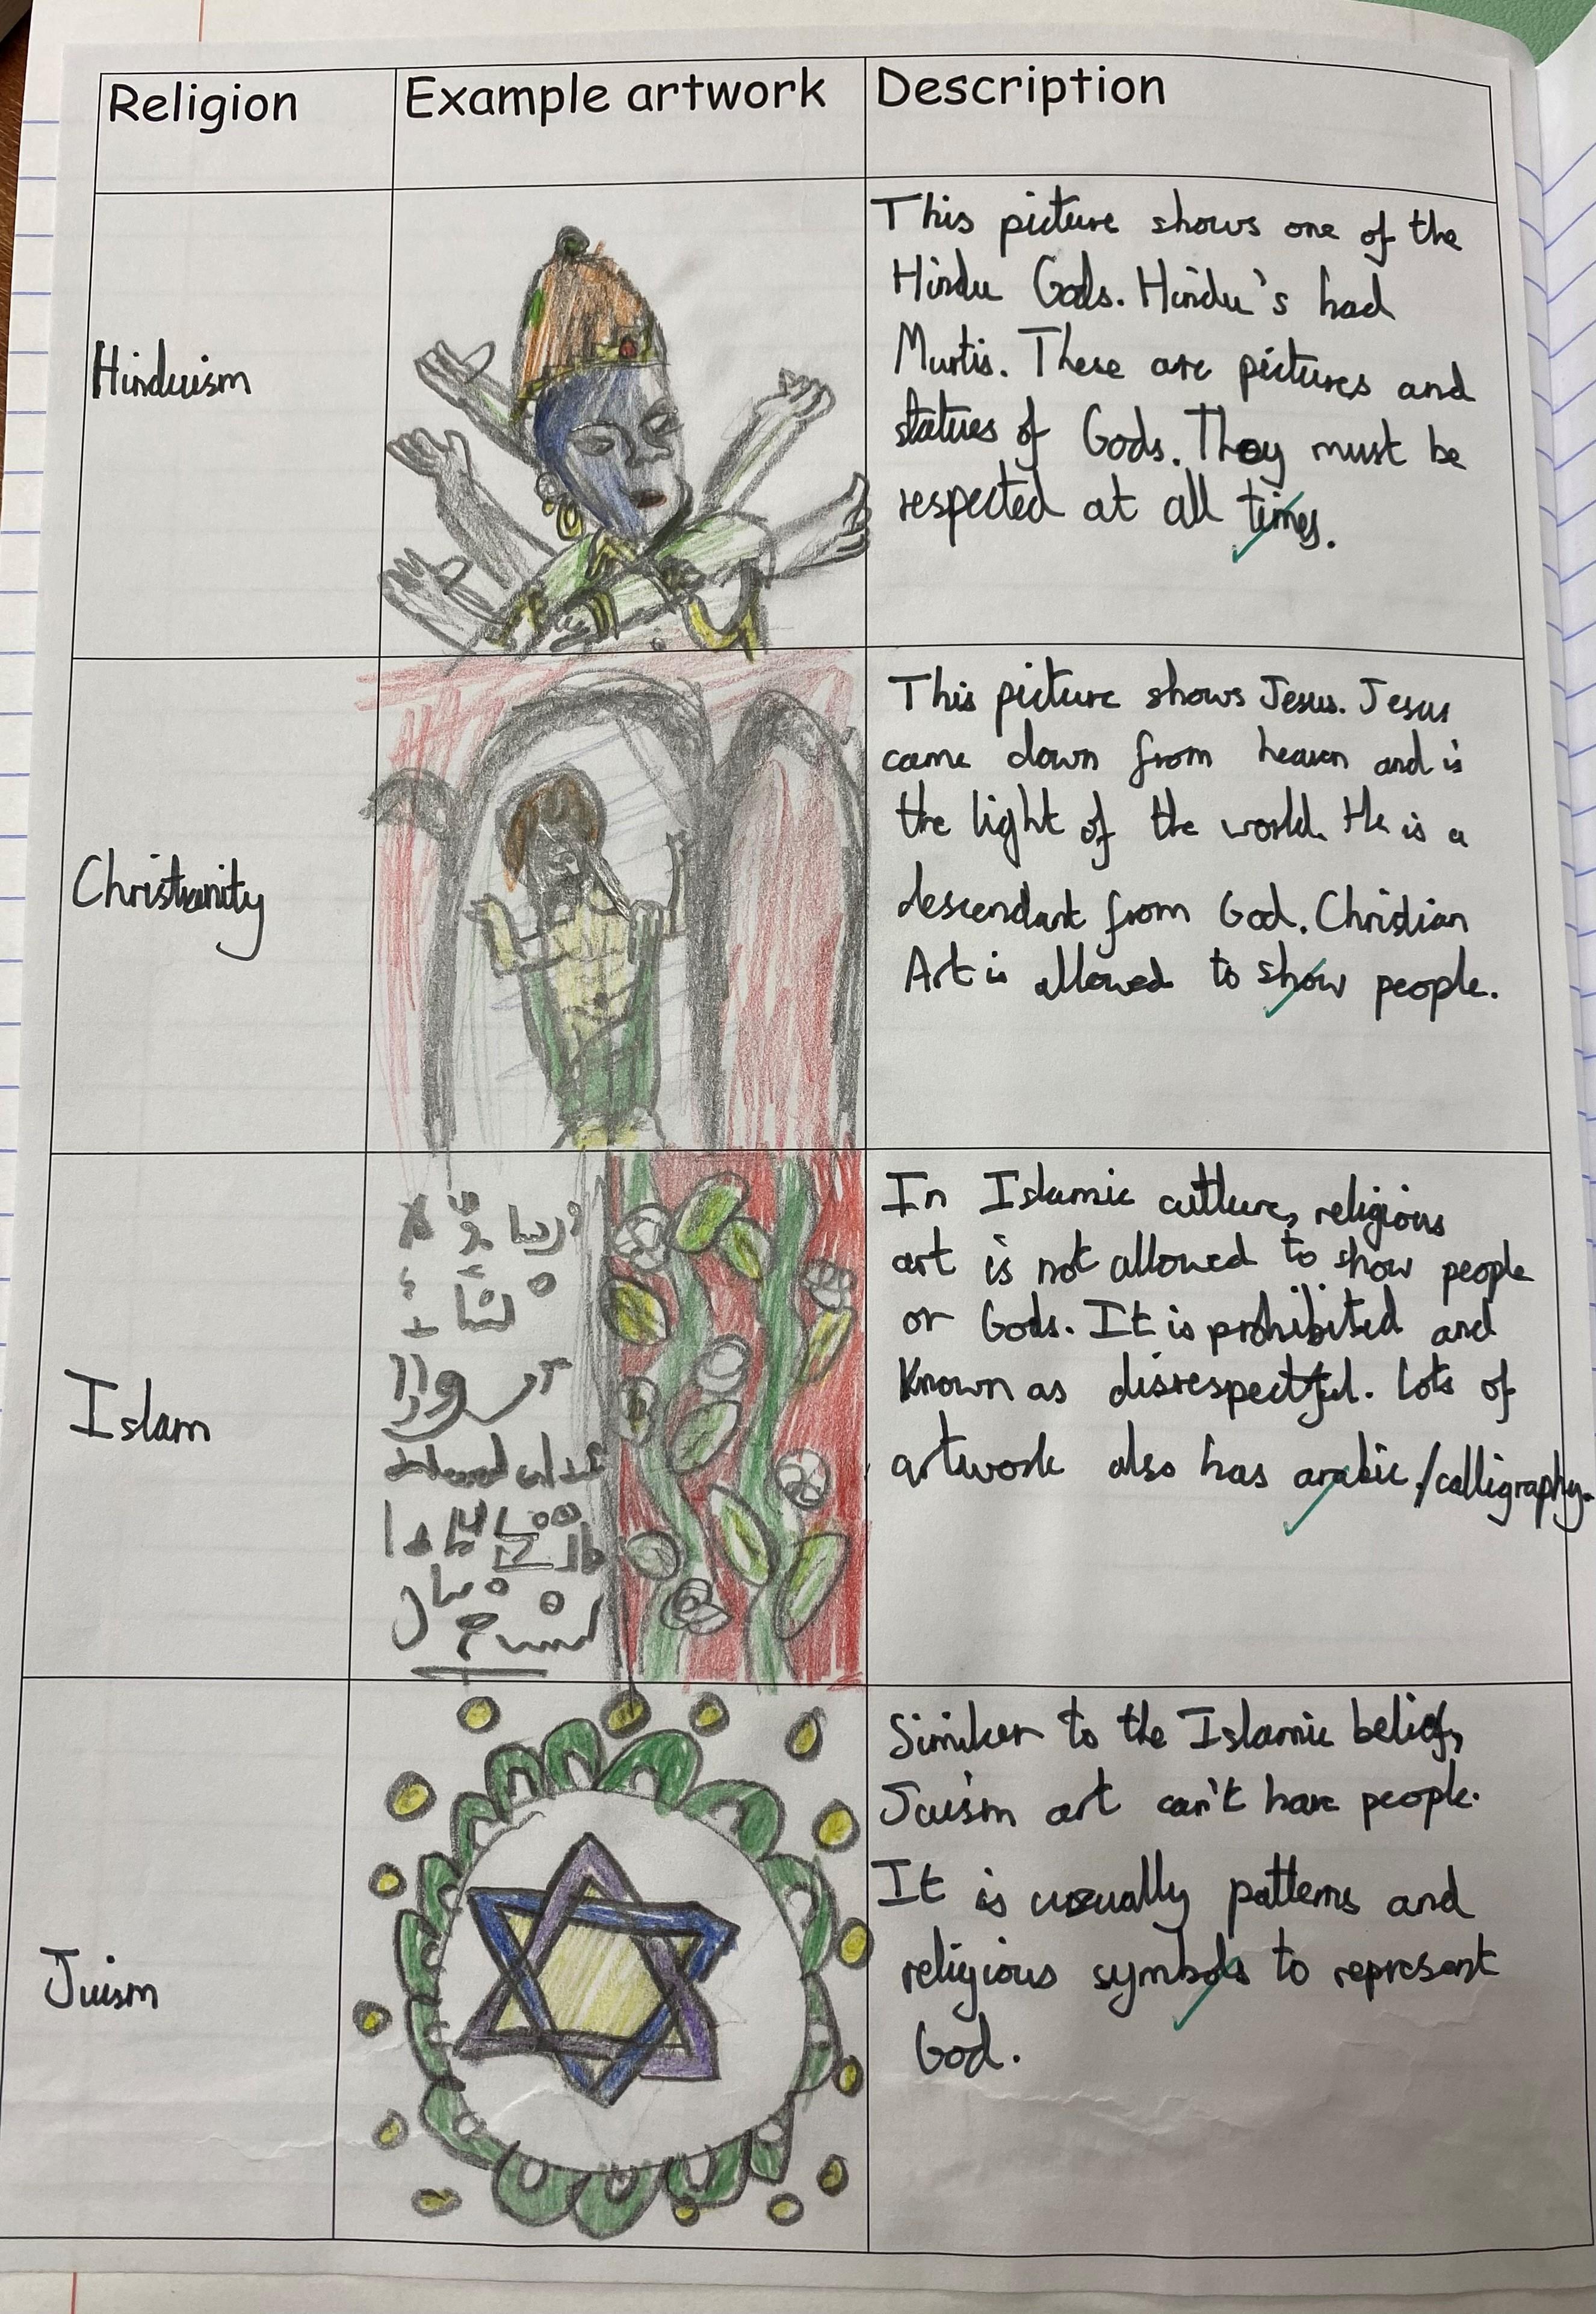 Religion
Example artwork
Description
Hinduism
This picture shows one of the
Hindu Gods. Hindu's had
Murtis. These are pictures and
statues of Gods. They must be
respected at all times.
Christianity
This picture shows Jesus. Jesus
came down from heaven and is
the light of the world. He is a
descendant from God. Christian
Art is allowed to show people.
Islam
In Islamic cultture, religious
art is not allowed to show people
or Gods. It is prohibited and
known as disrespectful. Lots of
artwork also has arabic /calligraphy.
Juism
Similar to the Islamic beliefs,
Juism art can't have people.
It is usually patterns and
religious symbols to represent
God.